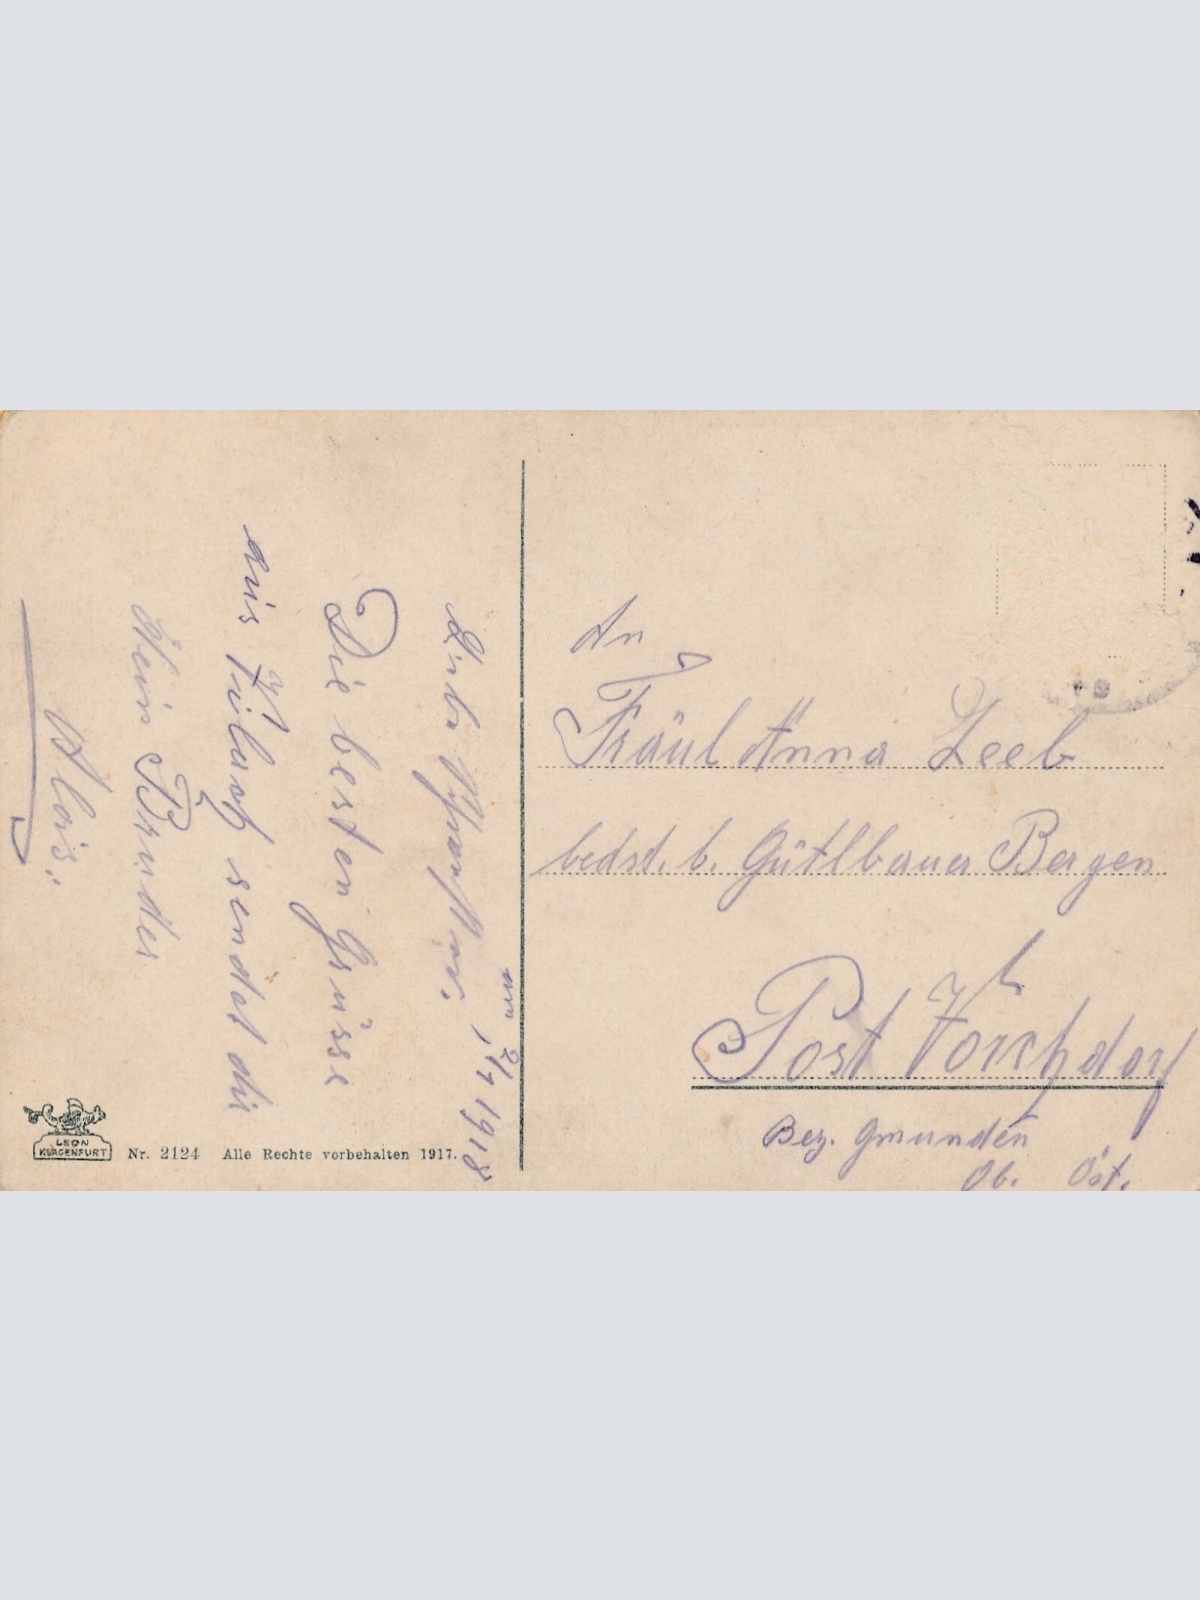 am 2/7 1918
Liebe Schwester,
Die besten Grüsse
aus sendet dir
dein Bruder
Alois.
An
Fräul Anna Leeb
bedst. b. Gütlbauer Bergen
Post Vorchdorf
Bez. Gmunden
Ob. Öst.
LEON
KLAGENFURT
Nr. 2124 Alle Rechte vorbehalten 1917.